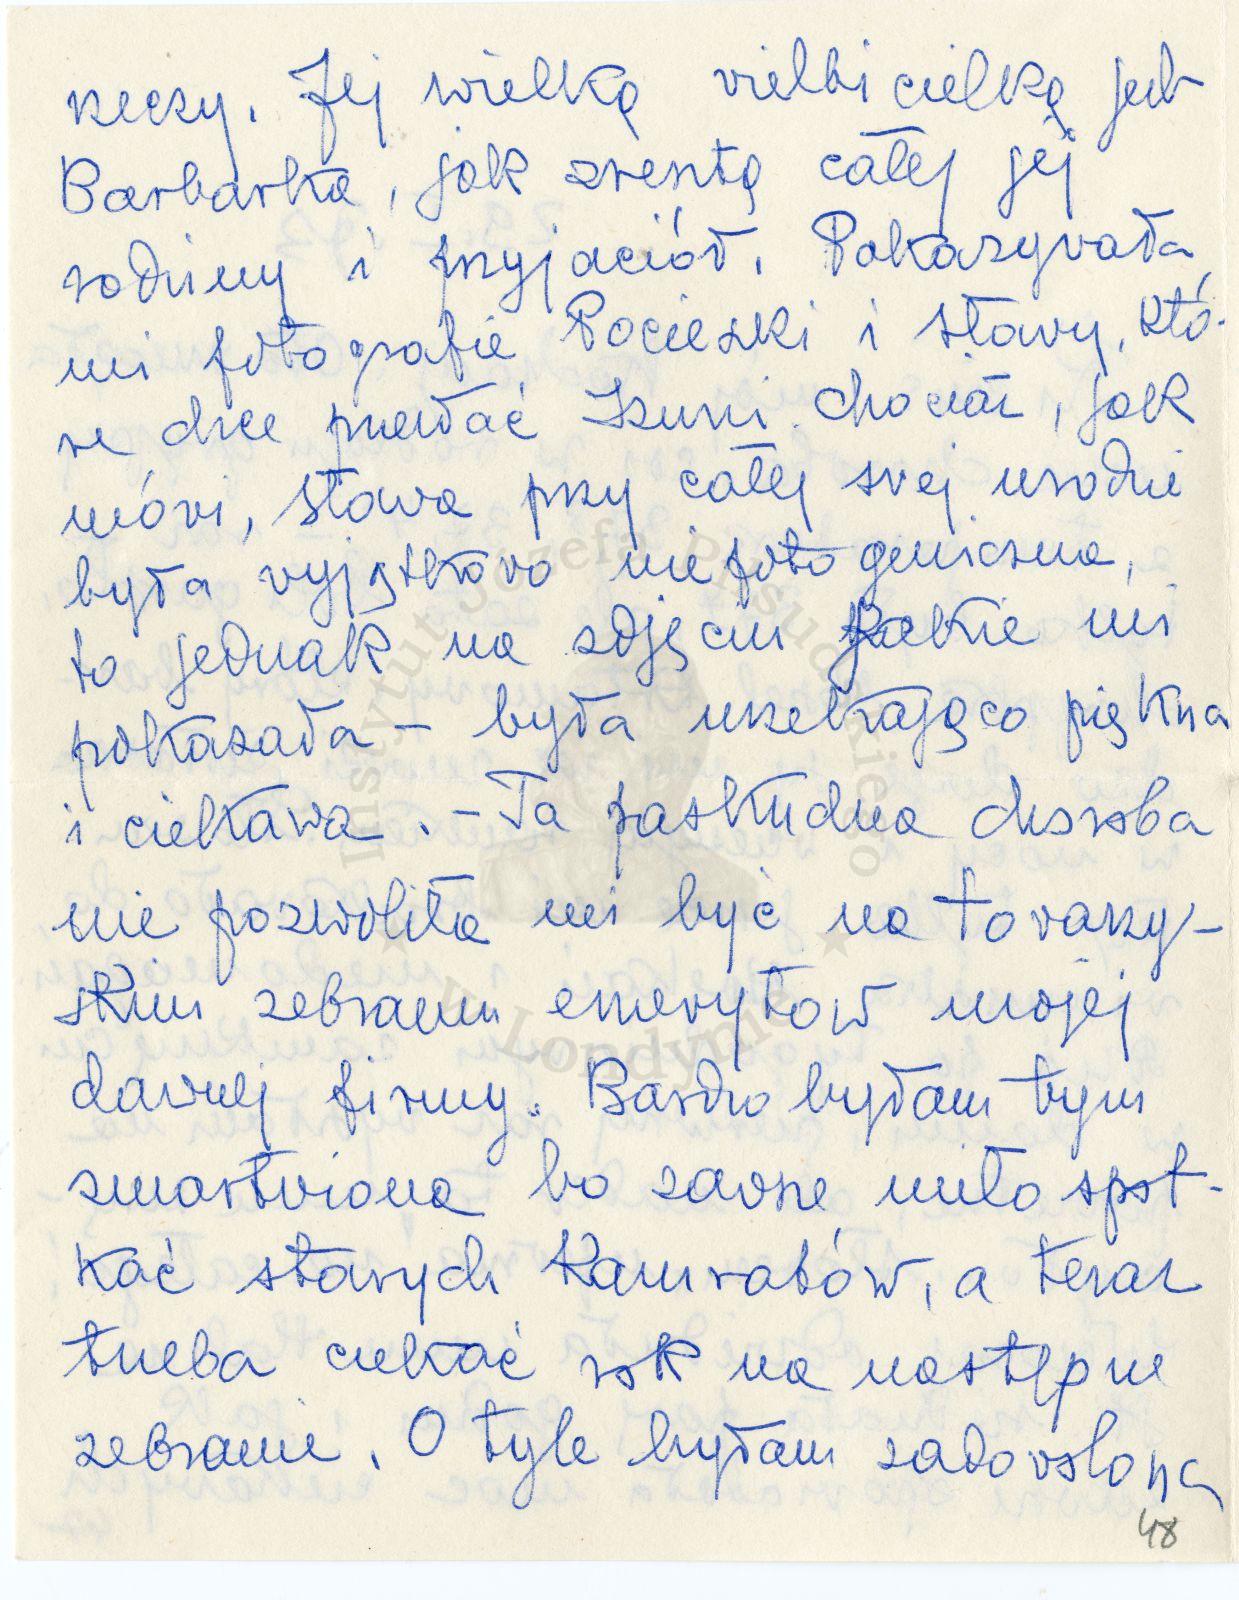 rzeczy. Jej wielką wielbicielką jest
Barbarka, jak zresztą całej jej
rodziny i przyjaciół. Pokazywała
mi fotografie Pocieszki i Sławy, któ-
re chce przesłać Izuni chociaż, jak
mówi, Sława przy całej swej urodzie
była wyjątkowo niefotogeniczna,
to jednak na zdjęciu jakie mi
pokazała – była urzekająco piękna
i ciekawa. – Ta paskudna choroba
nie pozwoliła mi być na towarzy-
skim zebraniu emerytów mojej
dawnej firmy. Bardzo byłam tym
zmartwiona bo zawsze miło spot-
kać starych kamratów, a teraz
trzeba czekać rok na następne
zebranie. O tyle byłam zadowolona
48
Instytut Józefa Piłsudskiego
w Londynie